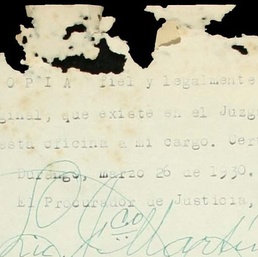 OPIA fiel y legalmente
ginal, que existe en el Juzg
está oficina a mi cargo. Cer
Durango, marzo 26 de 1930.
El Procurador de Justicia,
Lic. J. Martín